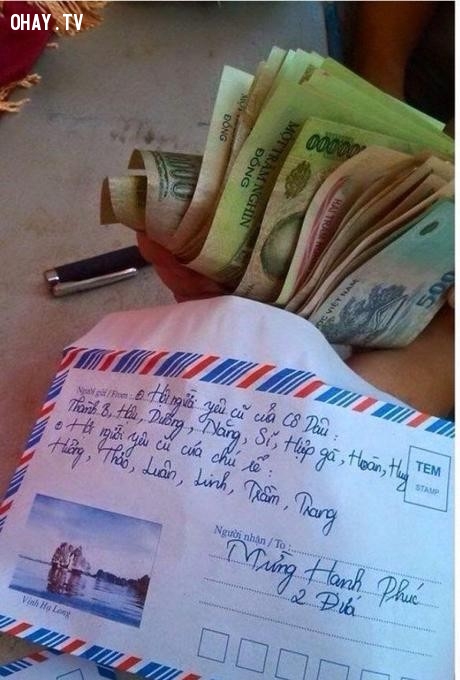 OHAY.TV
ĐỒNG
MỘT TRĂM NGHÌN
ĐỒNG
000000
VIỆT NAM
500
Người gửi / From : Hội người yêu cũ của Cô Dâu :
Thành B, Hải, Dưỡng, Năng, Sĩ, Hiệp gà, Hoàn, Huy
Hội người yêu cũ của chú rể :
Hưởng, Thảo, Luân, Linh, Trầm, Trang
TEM
STAMP
Người nhận / To :
Mừng Hạnh Phúc
2 Đứa
Vịnh Hạ Long